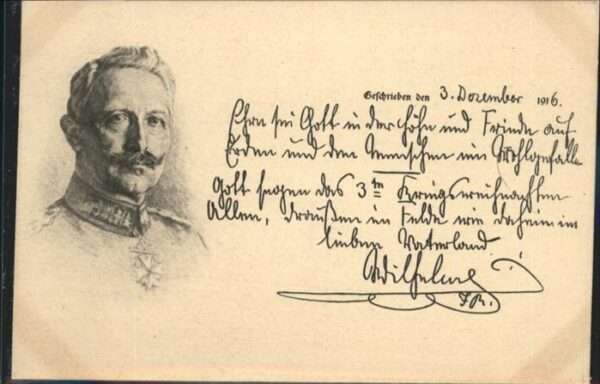 Geschrieben den 3. Dezember 1916.
Ehre sei Gott in der Höhe und Friede auf
Erden und den Menschen ein Wohlgefallen
Gott segne das 3te Kriegsweihnachten
Allen, draußen im Felde wie daheim im
lieben Vaterland.
Wilhelm
I.R.